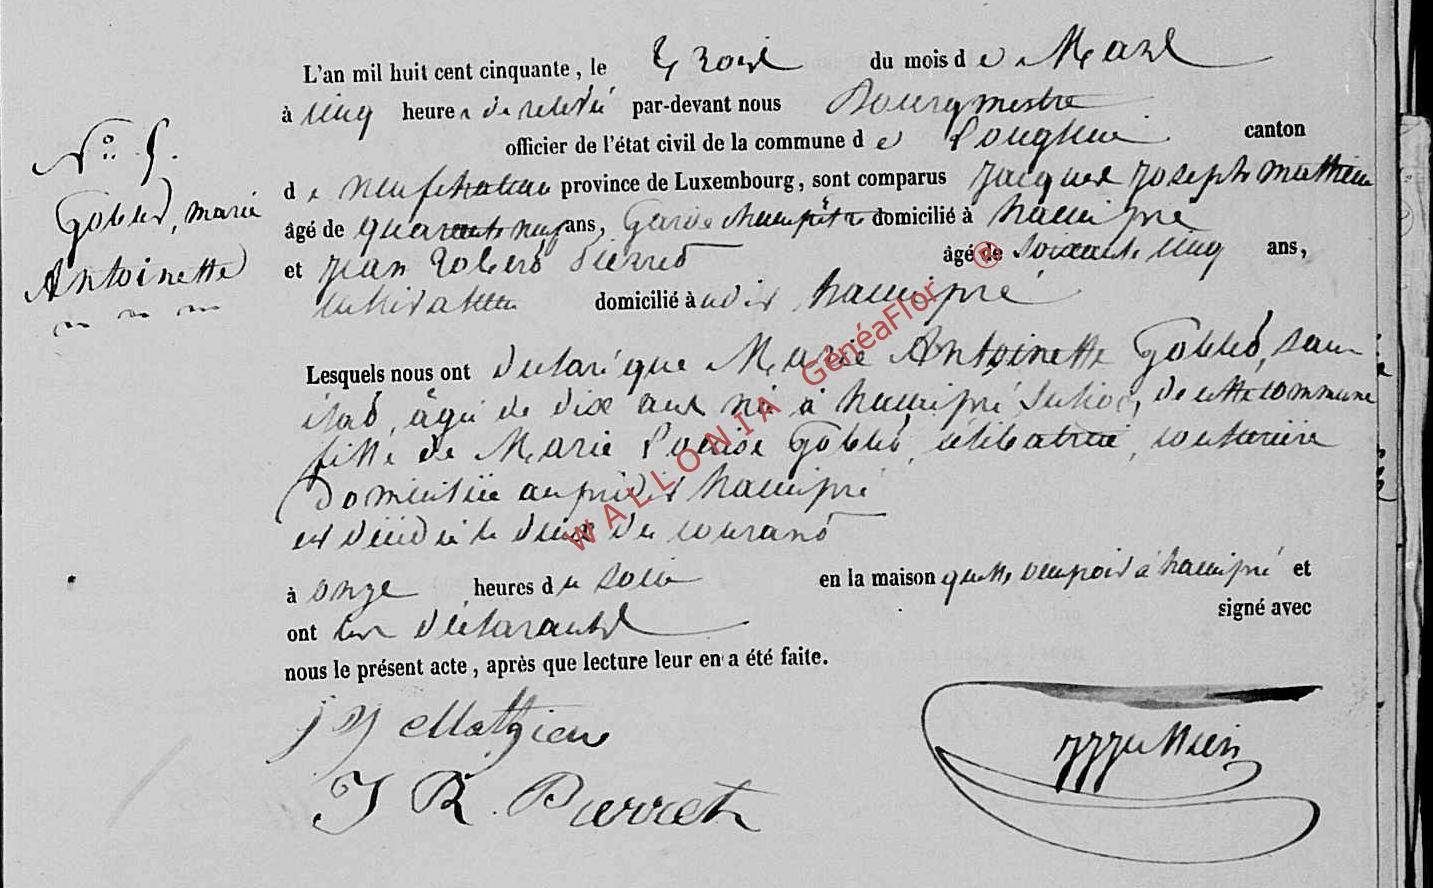 N° 5.
Goblet, marie
Antoinette
L'an mil huit cent cinquante, le trois du mois de Mars
à cinq heures de relevé par-devant nous Bourgmestre
officier de l'état civil de la commune de Longlier canton
de neufchateau province de Luxembourg, sont comparus Jacques Joseph mathieu
âgé de quarante neuf ans, Garde champêtre domicilié à hamipré
et Jean Robert Pierret âgé de soixante cinq ans,
cultivateur domicilié à udit hamipré
Lesquels nous ont déclaré que Marie Antoinette Goblet, sans
état, âgée de dix ans née à hamipré de cette commune
fille de Marie Louise Goblet, célibataire, couturière
domiciliée au prédit hamipré
est décédée le deux du courant
à onze heures du soir en la maison quelle occupoit à hamipré et
ont les déclarants signé avec
nous le présent acte, après que lecture leur en a été faite.
J J Mathieu
J R Pierret
WALLONIA GénéaFlor ®